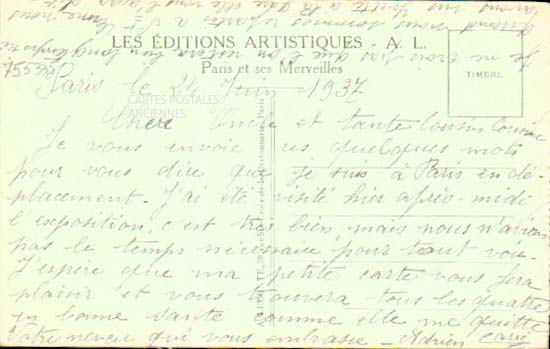 LES ÉDITIONS ARTISTIQUES - A. L.
Paris et ses Merveilles
TIMBRE
CARTES POSTALES
ANCIENNES
Paris le 24 Juin 1937
Chere Oncle et tante Cousin Cousine
Je vous envoie ces quelques mots
pour vous dire que je suis à Paris en dé-
placement. J'ai été visité hier après-midi
l'exposition, c'est très bien, mais nous n'avions
pas le temps nécessaire pour tout voir.
J'espère que ma petite carte vous fera
plaisir et vous trouvera tous les quatre
en bonne santé comme elle me quitte
Votre neveu qui vous embrasse - Adrien
Je ne crois pas que l'on restera bien longtemps
quand nous sommes